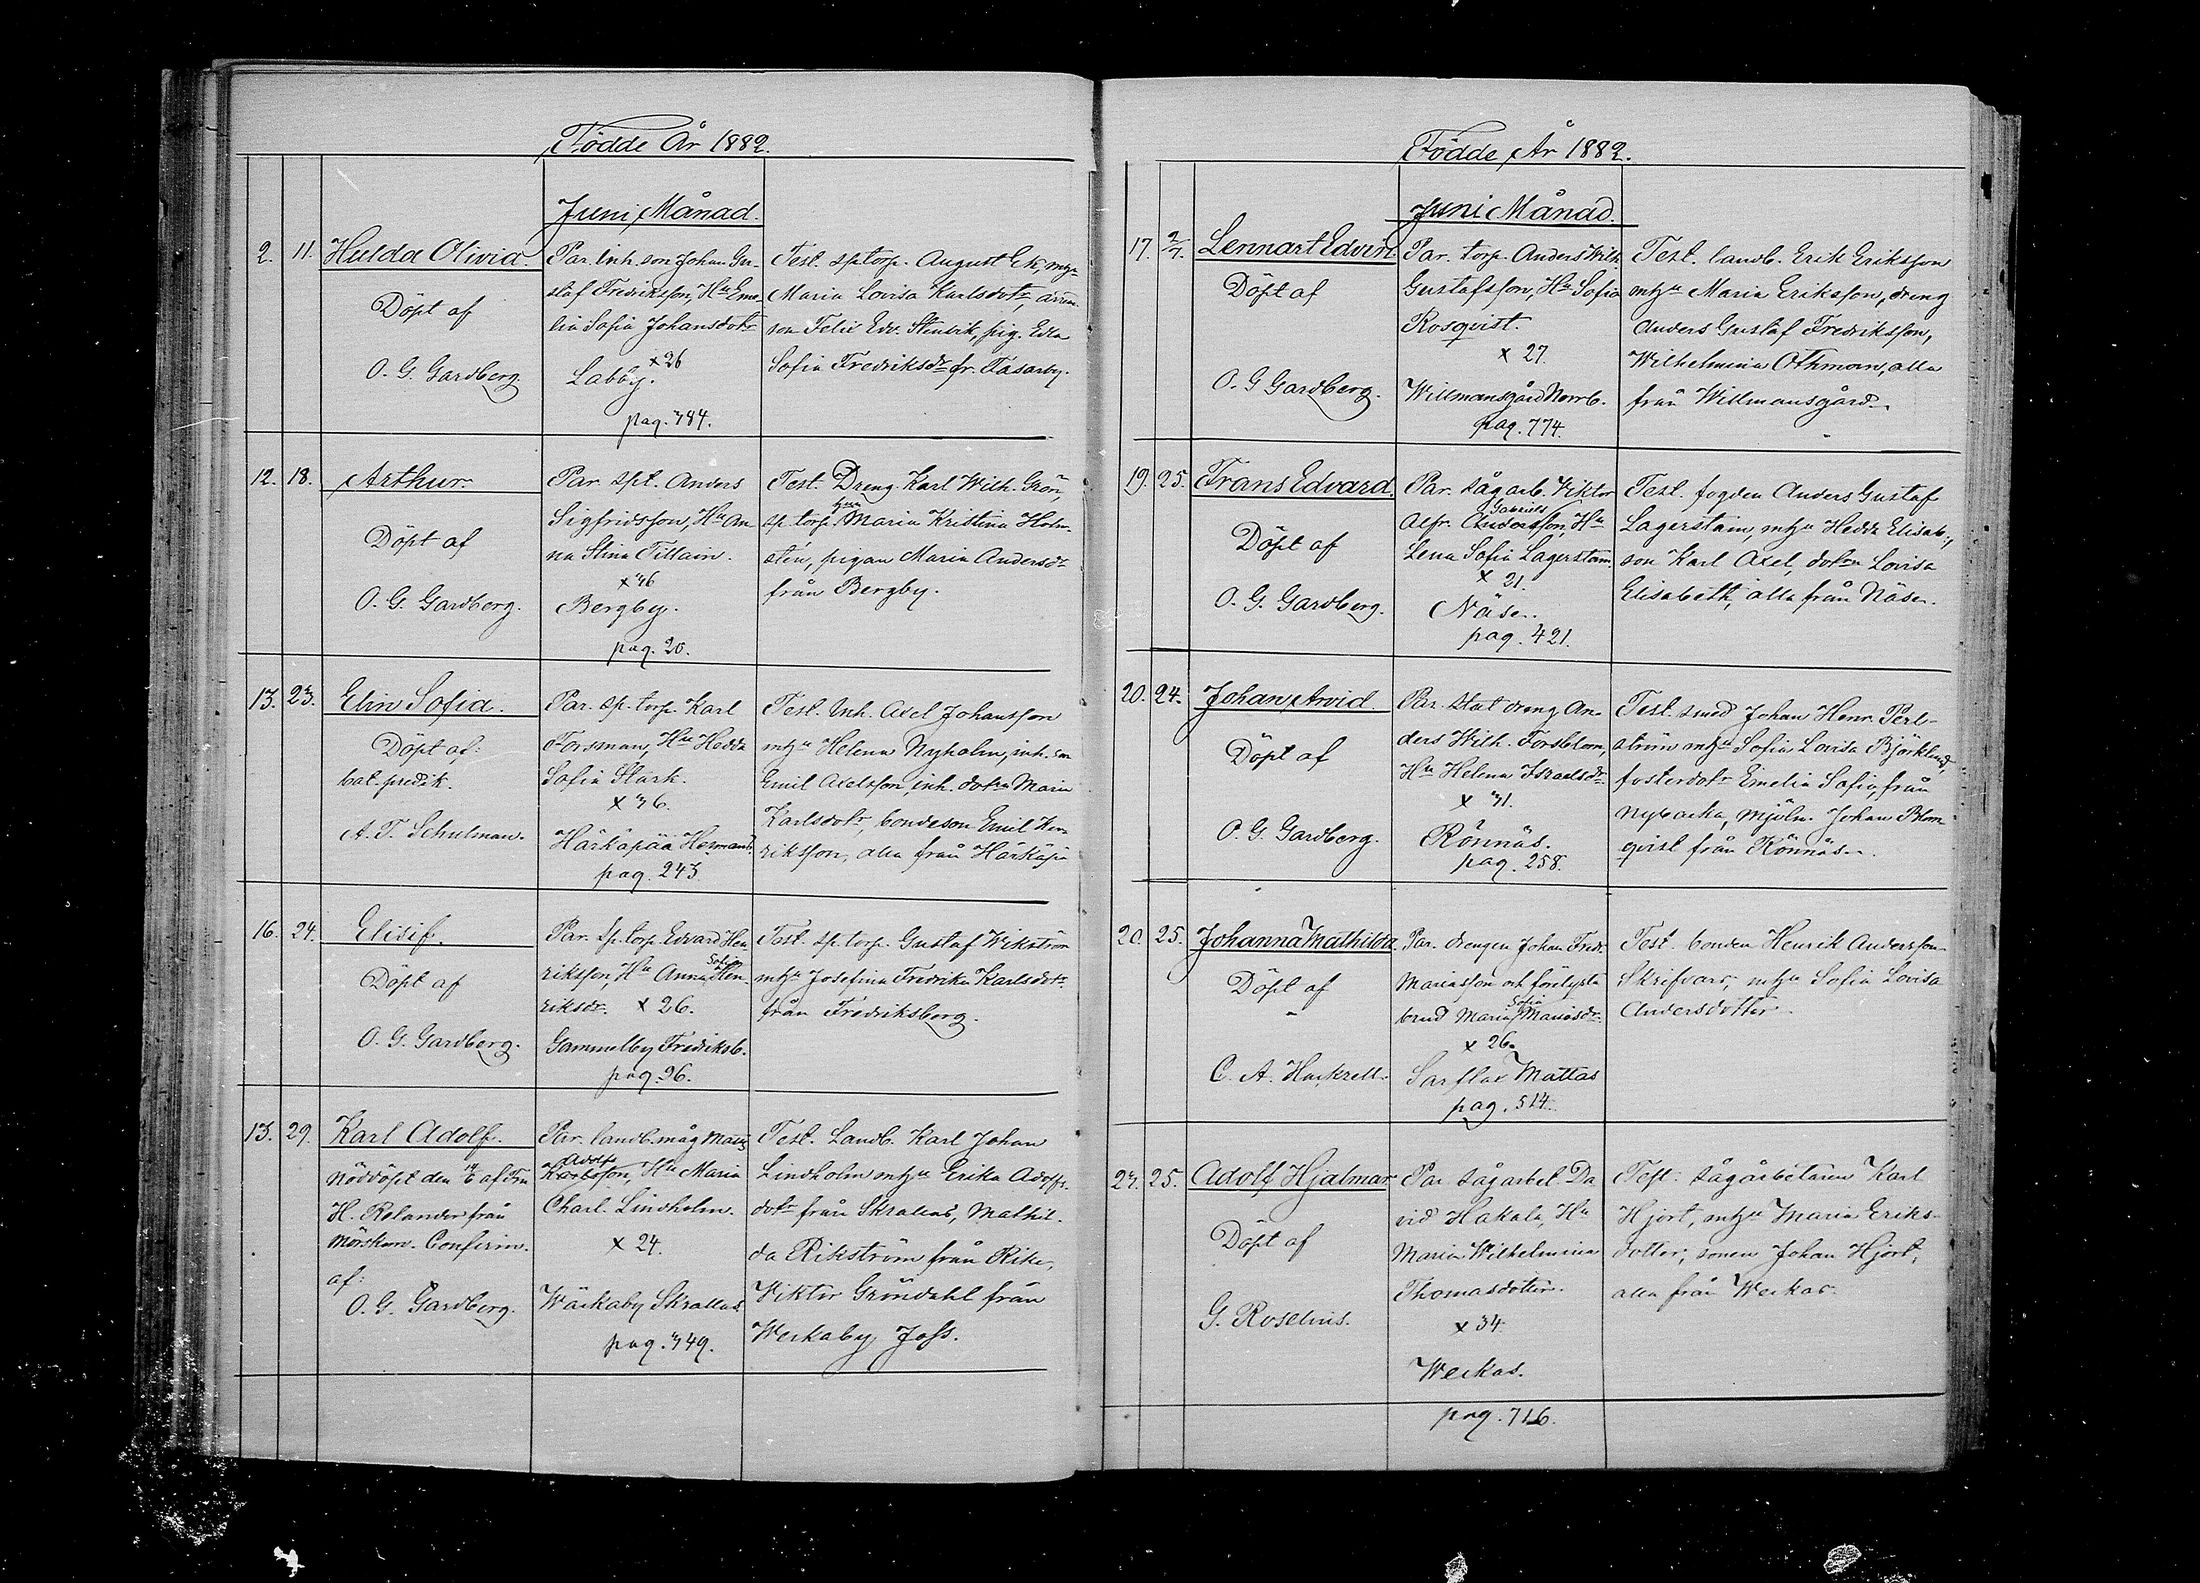 Födde År 1882.
Juni Månad.
2. 11. Hulda Olivia.
Döpt af
O. G. Gardberg.
Par. inh. son Johan Gu-
staf Fredriksson, Hu Eme-
lia Sofia Johansdotr
x 26
Labby.
pag. 384.
Test. sp. torp. August Ek, mhu
Maria Lovisa Karlsdotr,
son Felix Edv. Stenvik, pig. Edla
Sofia Fredriksdr fr. Tasarby.
12. 18. Arthur.
Döpt af
O. G. Gardberg.
Par. spt. Anders
Sigfridsson, Hu An
na Stina Tillain.
x 36
Bergby.
pag. 20.
Test. Dreng Karl Wilh. Grön,
sp. torp. Maria Kristina Holm-
stén, pigan Maria Andersdr
från Bergby.
13. 23. Elin Sofia.
Döpt af:
bat. predik.
A. T. Schulman.
Par. sp. torp. Karl
Forsman, Hu Hedda
Sofia Stark.
x 36.
Härkäpää Hermans
pag. 243
Test. Inh. Axel Johansson
mhu Helena Nyholm, inh. son
Emil Axelsson, inh. dotrn Maria
Karlsdotr, bondeson Emil Hen
riksson, alla från Härkäpä
16. 24. Elisif.
Döpt af
O. G. Gardberg.
Par. sp. torp. Edvard Hen-
riksson, Hu Anna Sofia Hen-
riksdr. x 26.
Gammelby Fredriksb.
pag. 96.
Test. sp. torp. Gustaf Wikström
mhu Josefina Fredrika Karlsdotr
från Fredriksberg.
13. 29. Karl Adolf.
Nöddöpt den 14/6 af Fru
H. Rolander från
Mörskom. Confirm.
af:
O. G. Gardberg.
Par. landb. måg
Adolf
Karlsson, Hu Maria
Charl. Lindholm.
x 24.
Wäckaby Skrallas
pag. 749.
Test. Landb. Karl Johan
Lindholm mhu Erika Adolfs-
dotr från Skrallas, Mathil-
da Rikström från Rike,
Viktor Gröndahl från
Weckaby Joss.
Födde År 1882.
Juni Månad.
17. 2/7. Lennart Edvin
Döpt af
O. G. Gardberg.
Par. torp. Anders Wilh.
Gustafsson, Hu Sofia
Rosqvist.
x 27.
Willmansgård Norrb.
pag. 774.
Test. landb. Erik Eriksson
mhu Maria Eriksson, dreng
Anders Gustaf Fredriksson,
Wilhelmina Othman, alla
från Willmansgård.
19. 25. Frans Edvard.
Döpt af
O. G. Gardberg.
Par. sågarb. Viktor
Gabriels
Alfr. Andersson, Hu
Lena Sofia Lagerstam
x 21.
Näse.
pag. 421.
Test. fogden Anders Gustaf
Lagerstam, mhu Hedda Elisab.,
son Karl Axel, dotrn Lovisa
Elisabeth, alla från Näse.
20. 24. Johan Arvid.
Döpt af
O. G. Gardberg.
Par. stat dreng An-
ders Wilh. Forsblom,
Hu Helena Israelsdr
x 31.
Rönnäs.
pag. 258.
Test. smed Johan Henr. Perl-
ström mhu Sofia Lovisa Björklund,
fosterdotr Emelia Sofia, från
Nybacka, Mjöln. Johan Blom
qvist från Rönnäs.
20. 25. Johanna Mathilda
Döpt af
C. A. Hackzell.
Par. drengen Johan Fredr.
Mariasson och förelysta
Sofia
brud Maria Mariasdr
x 26.
Sarflax Mattas
pag. 514.
Test. bonden Henrik Andersson
Skrifvars, mhu Sofia Lovisa
Andersdotter.
23. 25. Adolf Hjalmar
Döpt af
G. Roselius.
Par. sågarbet. Da
vid Hakala, Hu
Maria Wilhelmina
Thomasdotter.
x 34
Weckas.
pag. 716.
Test. sågarbetaren Karl
Hjort, mhu Maria Eriks-
dotter, sonen Johan Hjort,
alla från Weckas.